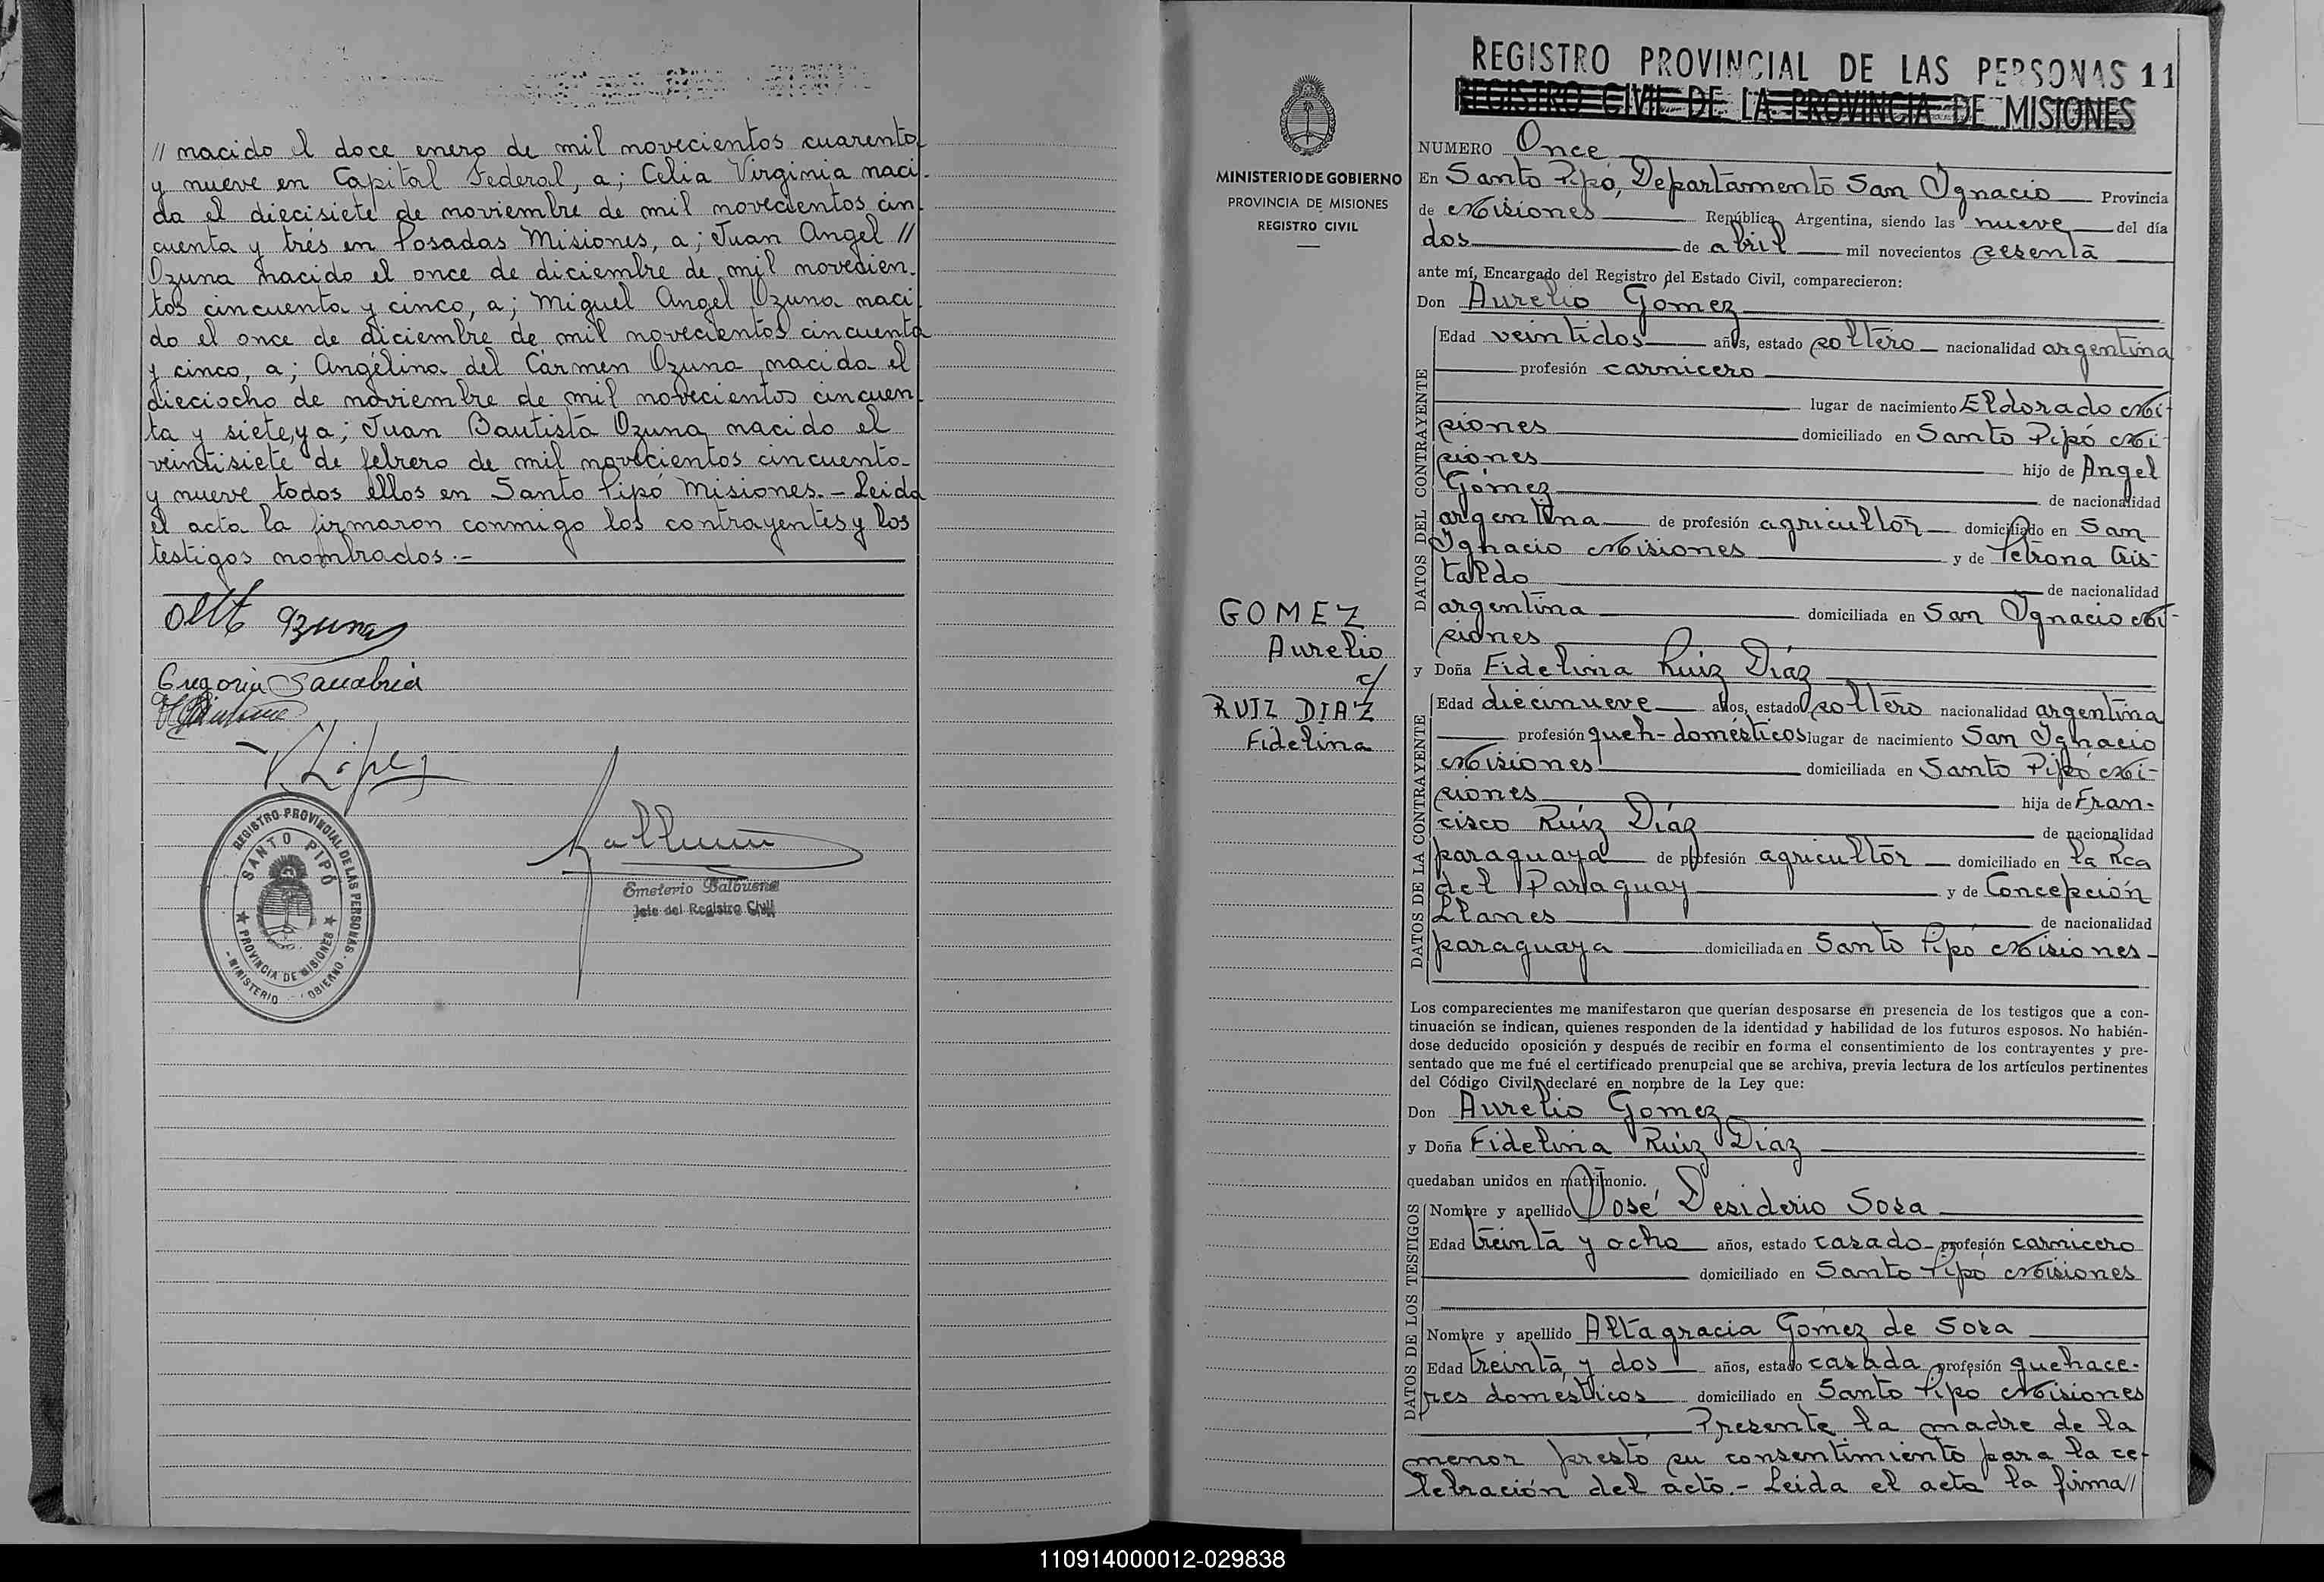 // nacido el doce enero de mil novecientos cuarenta
y nueve en Capital Federal, a; Celia Virginia naci-
da el diecisiete de noviembre de mil novecientos cin
cuenta y tres en Posadas Misiones, a; Juan Angel //
Ozuna nacido el once de diciembre de mil novecien-
tos cincuenta y cinco, a; Miguel Angel Ozuna naci-
do el once de diciembre de mil novecientos cincuenta
y cinco, a; Angélina del Cármen Ozuna nacida el
dieciocho de noviembre de mil novecientos cincuen
ta y siete, y a; Juan Bautista Ozuna nacido el
veintisiete de febrero de mil novecientos cincuenta-
y nueve todos ellos en Santo Pipó Misiones.- Leida
el acta la firmaron conmigo los contrayentes y los
testigos nombrados.-
Ozuna
Gregoria Sanabria
López
REGISTRO PROVINCIAL DE LAS PERSONAS
SANTO PIPÓ
PROVINCIA DE MISIONES
MINISTERIO OBIERNO
Emeterio Balbuena
Jefe del Registro Civil
MINISTERIO DE GOBIERNO
PROVINCIA DE MISIONES
REGISTRO CIVIL
GOMEZ
Aurelio
c/
RUIZ DIAZ
Fidelina
REGISTRO PROVINCIAL DE LAS PERSONAS 11
REGISTRO CIVIL DE LA PROVINCIA DE MISIONES
NUMERO Once
En Santo Pipó, Departamento San Ignacio Provincia
de Misiones República Argentina, siendo las nueve del día
dos de abril mil novecientos sesenta
ante mí, Encargado del Registro del Estado Civil, comparecieron:
Don Aurelio Gomez
DATOS DEL CONTRAYENTE
Edad veintidos años, estado soltero nacionalidad argentina
profesión carnicero
lugar de nacimiento Eldorado Mi-
siones domiciliado en Santo Pipó Mi-
siones hijo de Angel
Gómez de nacionalidad
argentina de profesión agricultor domiciliado en San
Ignacio Misiones y de Petrona Cris-
taldo de nacionalidad
argentina domiciliada en San Ignacio Mi-
siones
y Doña Fidelina Ruiz Diáz
DATOS DE LA CONTRAYENTE
Edad diecinueve años, estado soltero nacionalidad argentina
profesión queh-domésticos lugar de nacimiento San Ignacio
Misiones domiciliada en Santo Pipó Mi-
siones hija de Fran-
cisco Ruiz Diáz de nacionalidad
paraguaya de profesión agricultor domiciliado en la Rca
del Paraguay y de Concepción
Llanes de nacionalidad
paraguaya domiciliada en Santo Pipó Misiones-
Los comparecientes me manifestaron que querían desposarse en presencia de los testigos que a con-
tinuación se indican, quienes responden de la identidad y habilidad de los futuros esposos. No habién-
dose deducido oposición y después de recibir en forma el consentimiento de los contrayentes y pre-
sentado que me fué el certificado prenupcial que se archiva, previa lectura de los artículos pertinentes
del Código Civil, declaré en nombre de la Ley que:
Don Aurelio Gómez
y Doña Fidelina Ruiz Diáz
quedaban unidos en matrimonio.
DATOS DE LOS TESTIGOS
Nombre y apellido José Desiderio Sosa
Edad treinta y ocho años, estado casado profesión carnicero
domiciliado en Santo Pipó Misiones
Nombre y apellido Altagracia Gómez de Sosa
Edad treinta y dos años, estado casada profesión quehace-
res domésticos domiciliado en Santo Pipó Misiones
Presente la madre de la
menor prestó su consentimiento para la ce-
lebración del acto.- Leida el acta la firma//
110914000012-029838